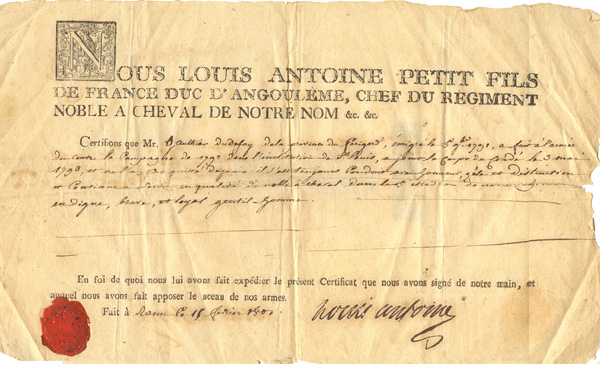 NOUS LOUIS ANTOINE PETIT FILS
DE FRANCE DUC D'ANGOULÊME, CHEF DU RÉGIMENT
NOBLE A CHEVAL DE NOTRE NOM &c. &c.
Certifions que Mr. Gauthier de la province du Périgord, émigré le 1791, a fait à l'armée
la Campagne de 1792 dans l'institution de St Louis, a joint le Corps de Condé le 3 mai
1793, et ne l'a pas quitté il s'est toujours Conduit avec honneur, zèle et distinction
et Continue à Servir en qualité de noble à cheval dans
en digne, brave, et loyal gentil-homme.
En foi de quoi nous lui avons fait expédier le présent Certificat que nous avons signé de notre main, et
auquel nous avons fait apposer le sceau de nos armes.
Fait à le 15 1801.
Louis antoine